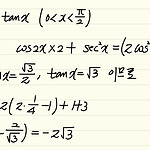 tanx (0<x<π/2)
cos2x×2 + sec²x=(2cos²
x=√3/2, tanx=√3 이므로
2(2·1/4-1)+H3
-2/√3)=-2√3